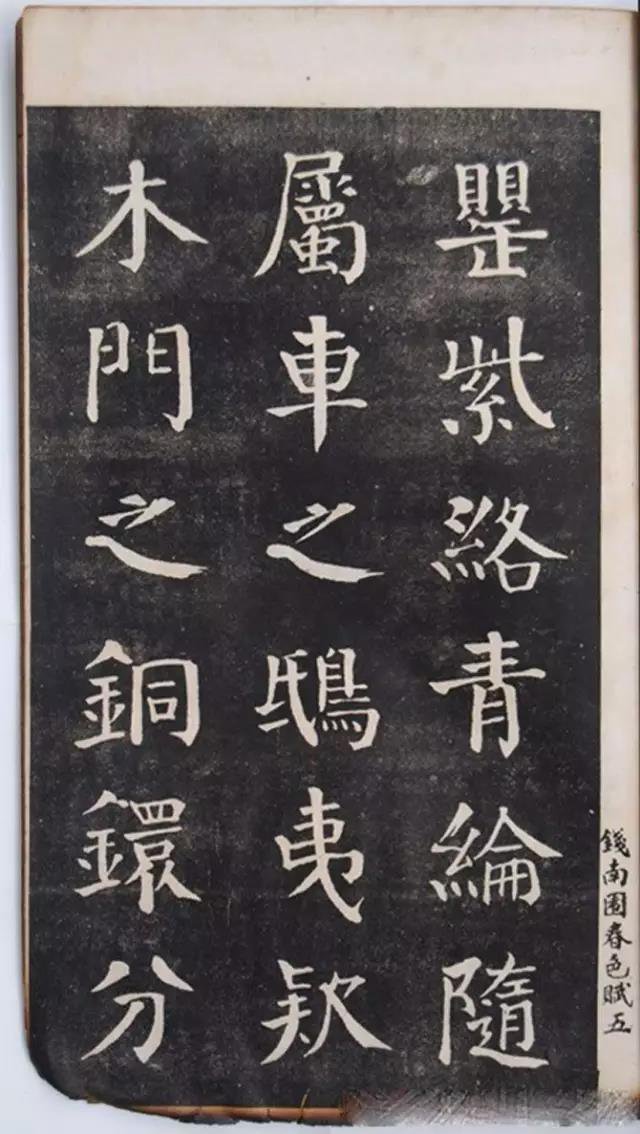 罌紫絡青綸隨
屬車之鴟夷欵
木門之銅鐶分
錢南園春色賦五